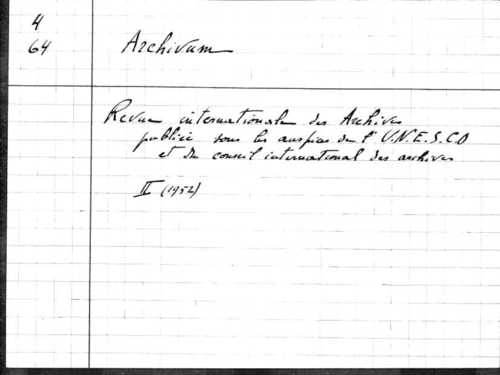 4
64
Archivum
Revue internationale des Archives
publiée sous les auspices de l'U.N.E.S.C.O
et du conseil international des archives
II (1952)